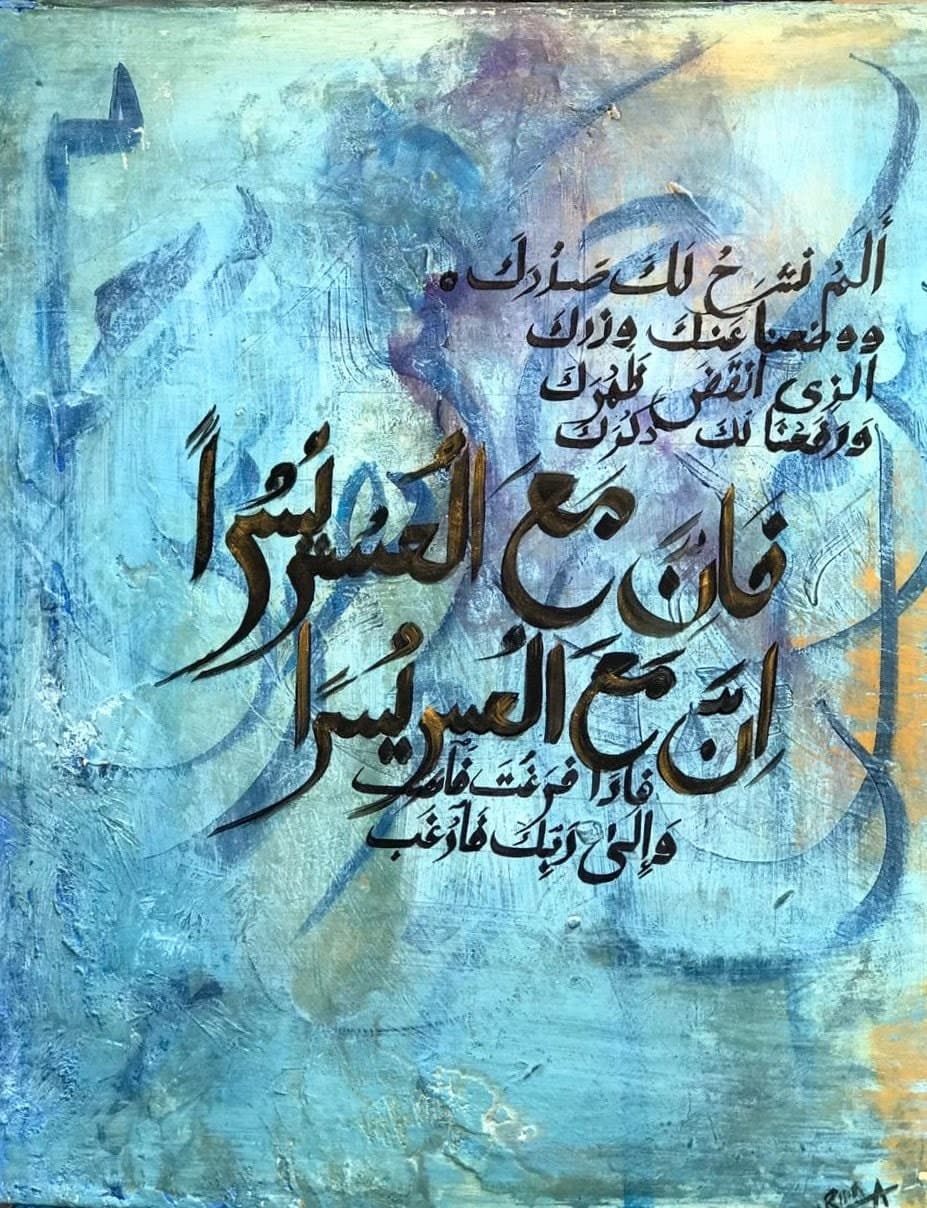 أَلَمْ نَشْرَحْ لَكَ صَدْرَكَ
ووضعنا عَنكَ وِزْرَكَ
الذِى أنقَضَ ظَهْرَكَ
وَرَفَعْنَا لَكَ ذِكْرَكَ
فَاِنَّ مَعَ الْعُسْرِ يُسْرًا
اِنَّ مَعَ الْعُسرِ يُسْرًا
فَاِذَا فَرَغْتَ فَانصَب
وَإِلىٰ رَبِّكَ فَارْغَب